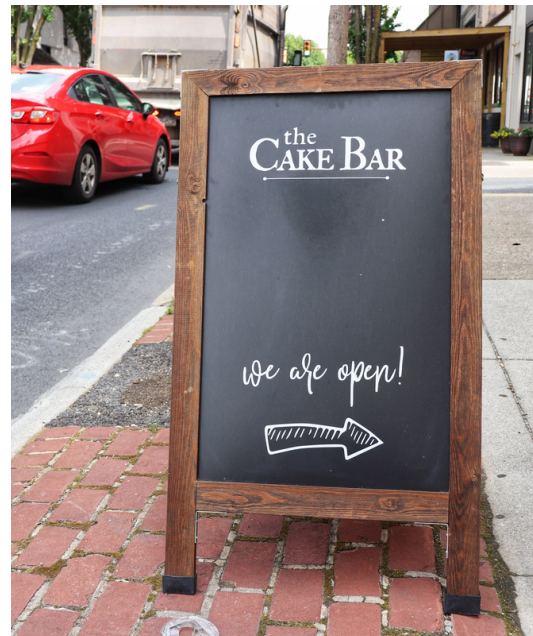 the
CAKE BAR
we are open!